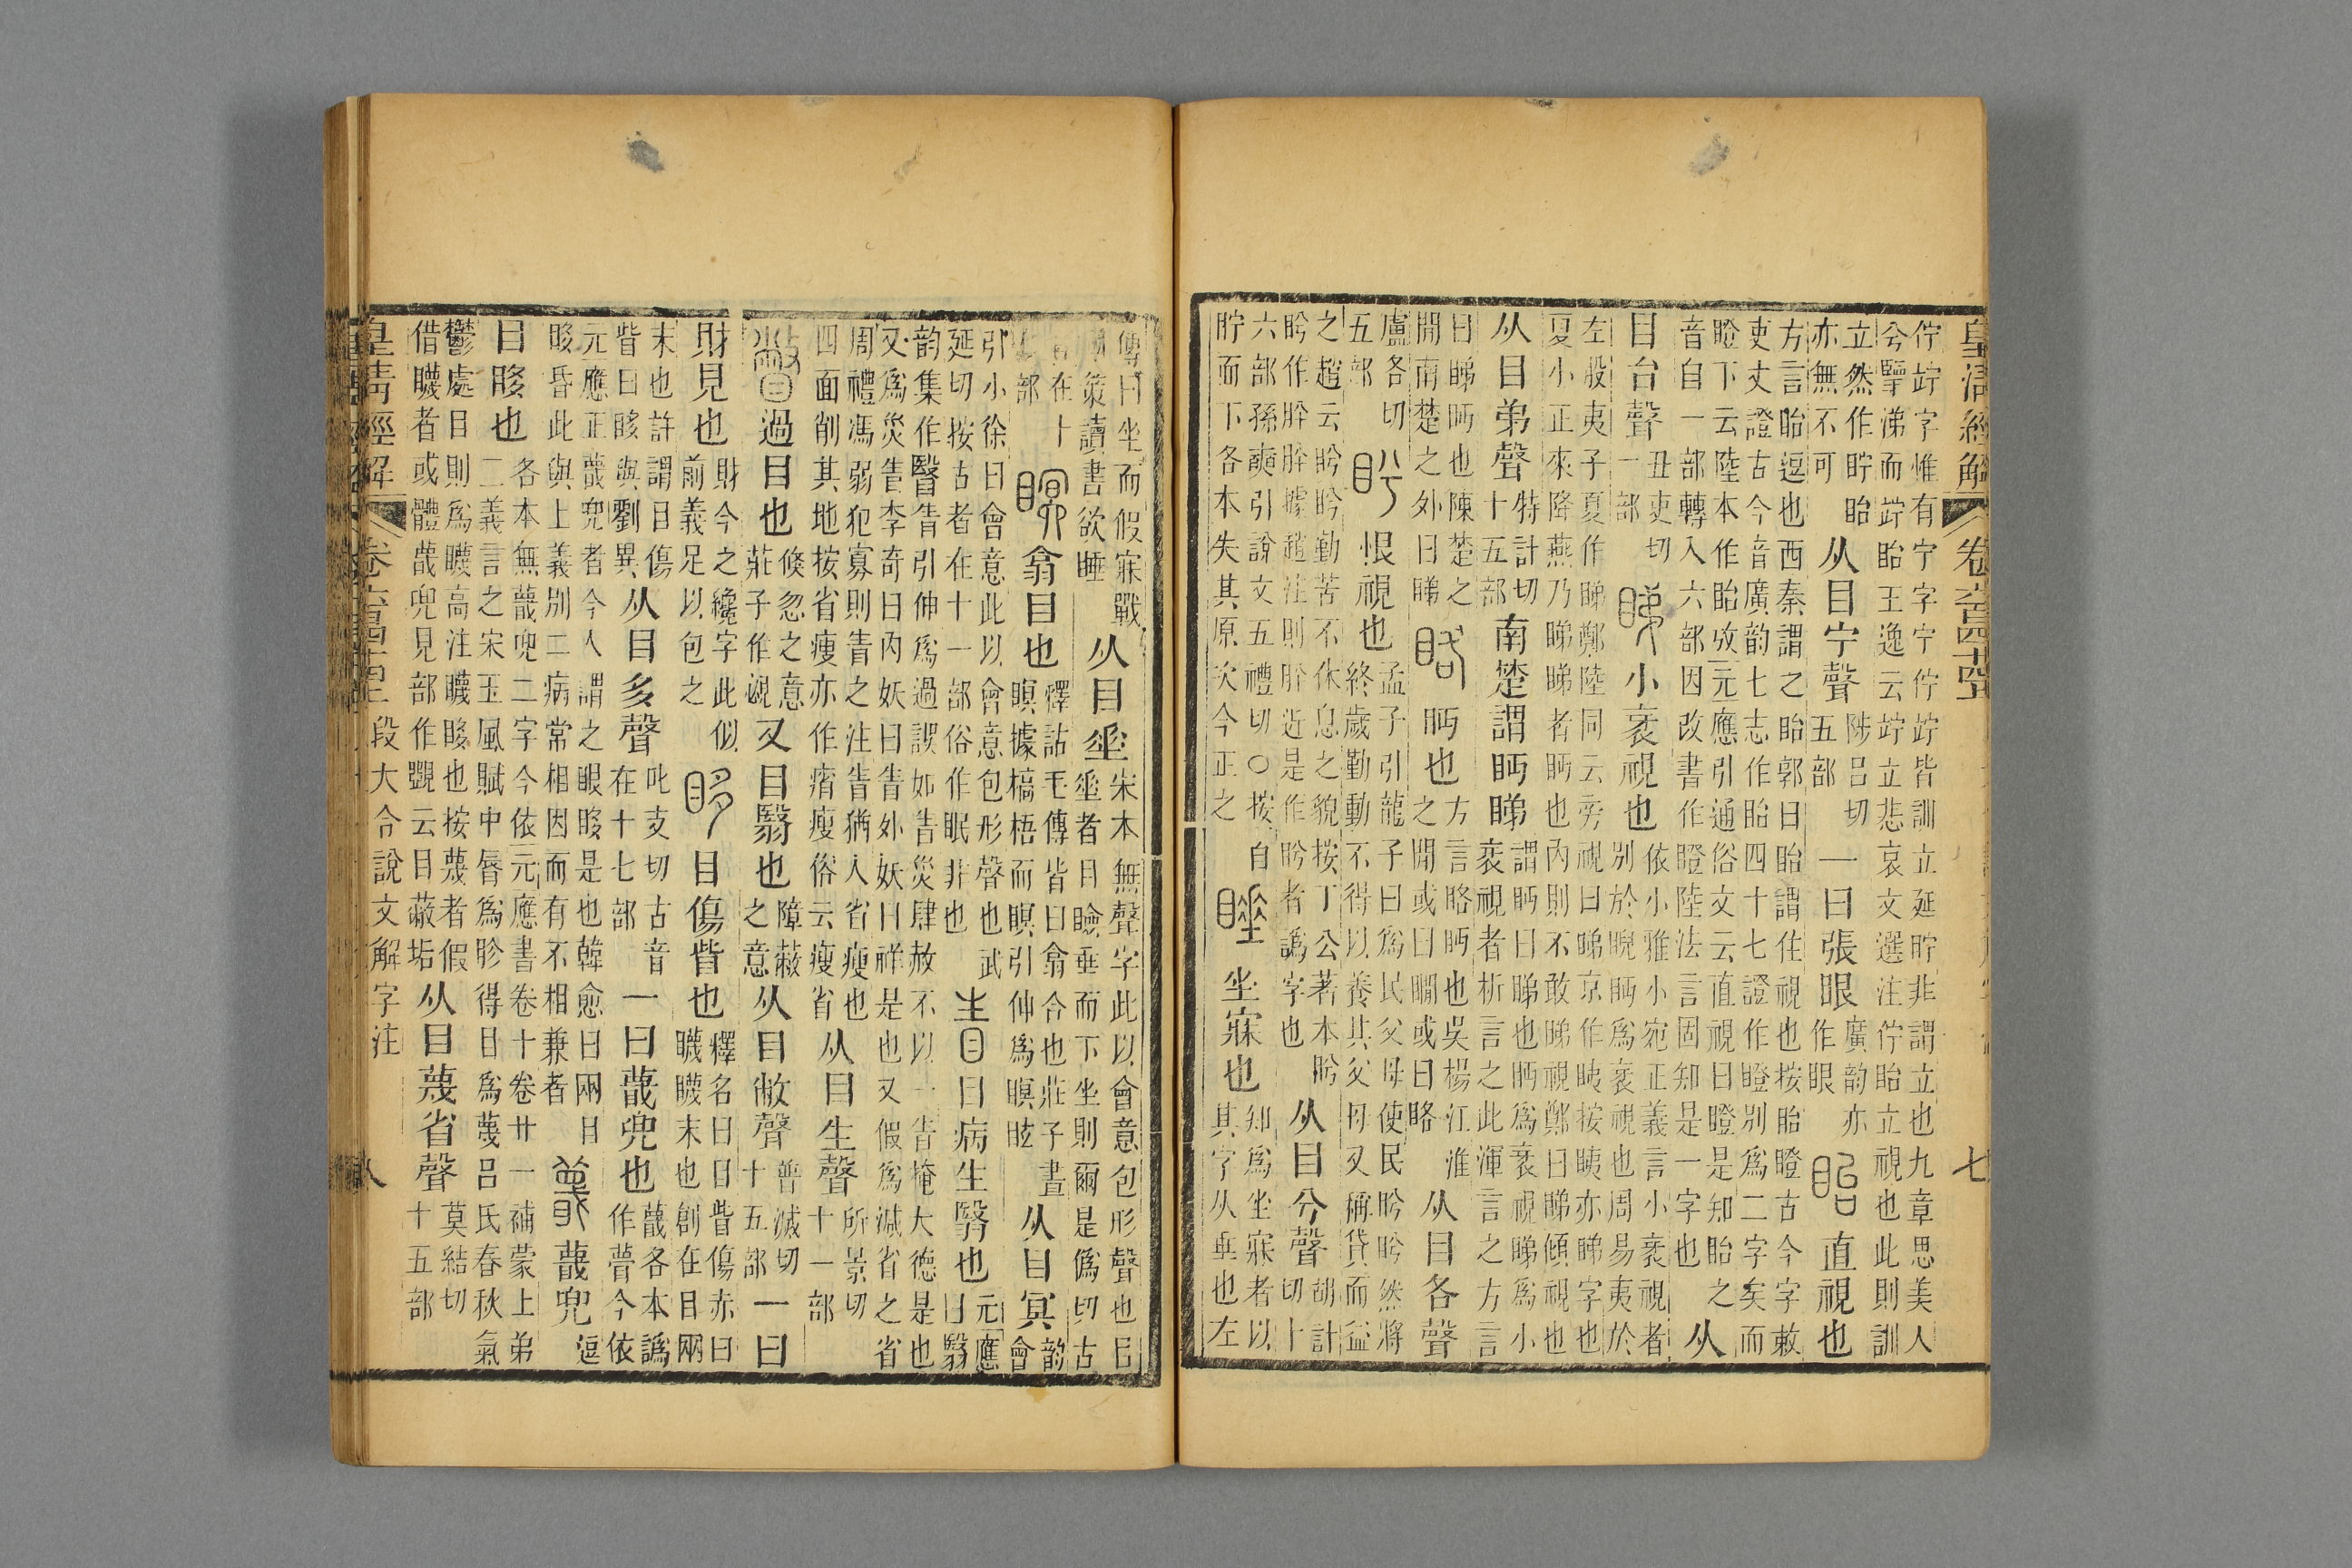 皇清經解 卷六百四十四 七
佇竚字惟有宁字宁佇竚皆訓立延貯非謂立也九章思美人
兮擥涕而竚眙王逸云竚立悲哀文選注佇眙立視也此則訓
立然作貯眙
亦無不可
从目宁聲
陟呂切
五部
一曰張眼
廣韵亦
作眼
眙直視也
方言眙逗也西秦謂之眙郭曰眙謂住視也按眙瞪古今字敕
吏丈證古今音廣韵七志作眙四十七證作瞪別爲二字矣而
瞪下云陸本作眙攷元應引通俗文云直視曰瞪是知眙之
音自一部轉入六部因改書作瞪陸法言固知是一字也
从
目台聲
丑吏切
一部
睇小衺視也
依小雅小宛正義言小衺視者
別於睨眄爲衺視也周易夷於
左股夷子夏作睇鄭陸同云旁視曰睇京作眱按眱亦睇字也
夏小正來降燕乃睇睇者眄也內則不敢睇視鄭曰睇傾視也
从目弟聲
特計切
十五部
南楚謂眄睇
謂眄曰睇也眄爲衺視睇爲小
衺視者析言之此渾言之方言
曰睇眄也陳楚之
閒南楚之外曰睇
略眄也
方言略眄也吳楊江淮
之閒或曰瞷或曰略
从目各聲
盧各切
五部
盻恨視也
孟子引龍子曰爲民父母使民盻盻然將
終歲勤動不得以養其父母又稱貸而益
之趙云盻盻勤苦不休息之貌按丁公著本盻
盻作肸肸據趙注則肸近是作盻者譌字也
从目兮聲
胡計
切十
六部孫奭引說文五禮切○按自
貯而下各本失其原次今正之
睡坐寐也
知爲坐寐者以
其字从垂也左
傳曰坐而假寐戰
國策讀書欲睡
从目坙
宋本無聲字此以會意包形聲也目
坙者目瞼垂而下坐則爾是僞切古
音在十
七部
瞑翕目也
釋詁毛傳皆曰翕合也莊子晝
瞑據槁梧而瞑引伸爲瞑眩
从目冥
韵
會
引小徐曰會意此以會意包形聲也武
延切按古者在十一部俗作眠非也
眚目病生翳也
元應
曰翳
韵集作瞖眚引伸爲過誤如眚災肆赦不以一眚掩大德是也
又爲災眚李奇曰內妖曰眚外妖曰祥是也又假爲減省之省
周禮馮弱犯寡則眚之注眚猶人省瘦也
四面削其地按省瘦亦作瘠瘦俗云瘦省
从目生聲
所景切
十一部
瞥過目也
倏忽之意
莊子作覕
又目翳也
障蔽
之意
从目敝聲
普滅切
十五部
一曰
財見也
財今之纔字此似
前義足以包之
眵目傷眥也
釋名曰目眥傷赤曰
䁾䁾末也創在目兩
末也許謂目傷
眥曰眵與劉異
从目多聲
叱支切古音
在十七部
一曰蔑兜也
蔑各本譌
作瞢今依
元應正蔑兜者今人謂之眼眵是也韓愈曰兩目
眵昏此與上義別二病常相因而有不相兼者
蔑兜
逗
目眵也
各本無蔑兜二字今依元應書卷十卷廿一補蒙上弟
二義言之宋玉風賦中脣爲胗得目爲蔑呂氏春秋氣
鬱處目則爲䁾高注䁾眵也按蔑者假
借䁾者或體蔑兜見部作覴云目蔽垢
从目蔑省聲
莫結切
十五部
皇清經解 卷六百四十四 段大令說文解字注 八